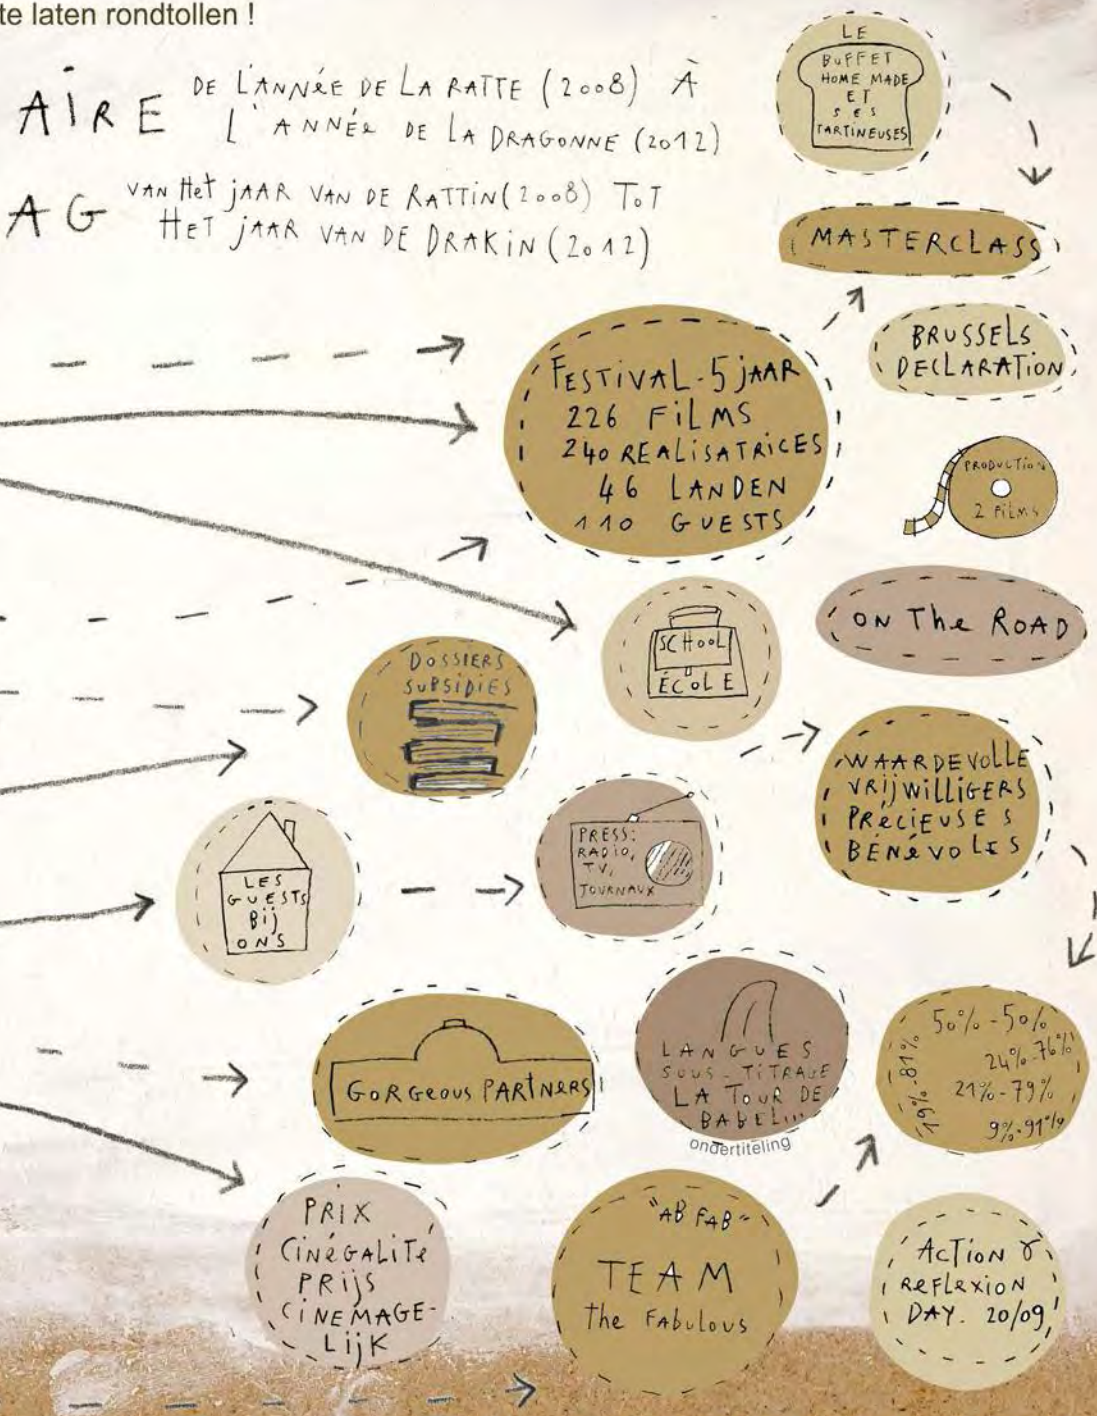 te laten rondtollen !
AIRE
DE L'ANNÉE DE LA RATTE (2008) À
L'ANNÉE DE LA DRAGONNE (2012)
AG
VAN Het jAAR VAN DE RATTIN (2008) TOT
HET jAAR VAN DE DRAKIN (2012)
LE
BUFFET
HOME MADE
ET
SES
TARTINEUSES
MASTERCLASS
BRUSSELS
DECLARATION
FESTIVAL - 5 jAAR
226 FILMS
240 REALISATRICES
46 LANDEN
110 GUESTS
PRODUCTION
2 FILMS
SCHOOL
ÉCOLE
ON The ROAD
DOSSIERS
SUBSIDIES
WAARDEVOLLE
VRIJWILLIGERS
PRÉCIEUSES
BÉNÉVOLES
LES
GUESTS
Bij
ONS
PRESS:
RADIO,
TV,
JOURNAUX
GORGeous PARTNeRS
LANGUES
SOUS-TITRAGE
LA TOUR DE
BABEL...
ondertiteling
50% - 50%
24% - 76%
19% - 81%
21% - 79%
9% - 91%
PRIX
CINéGALITé
PRIJS
CINEMAGE-
LIJK
"AB FAB"
TEAM
the FABULOUS
ACTION &
REFLEXION
DAY. 20/09